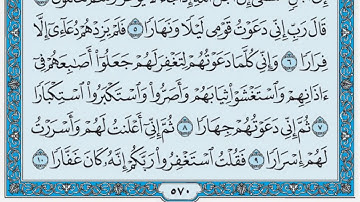 قَالَ رَبِّ إِنِّي دَعَوْتُ قَوْمِي لَيْلًا وَنَهَارًا ٥ فَلَمْ يَزِدْهُمْ دُعَآءِيٓ إِلَّا
فِرَارًا ٦ وَإِنِّي كُلَّمَا دَعَوْتُهُمْ لِتَغْفِرَ لَهُمْ جَعَلُوٓا۟ أَصَٰبِعَهُمْ فِيٓ
ءَاذَانِهِمْ وَٱسْتَغْشَوْا۟ ثِيَابَهُمْ وَأَصَرُّوا۟ وَٱسْتَكْبَرُوا۟ ٱسْتِكْبَارًا
٧ ثُمَّ إِنِّي دَعَوْتُهُمْ جِهَارًا ٨ ثُمَّ إِنِّيٓ أَعْلَنتُ لَهُمْ وَأَسْرَرْتُ
لَهُمْ إِسْرَارًا ٩ فَقُلْتُ ٱسْتَغْفِرُوا۟ رَبَّكُمْ إِنَّهُۥ كَانَ غَفَّارًا ١٠
٥٧٠